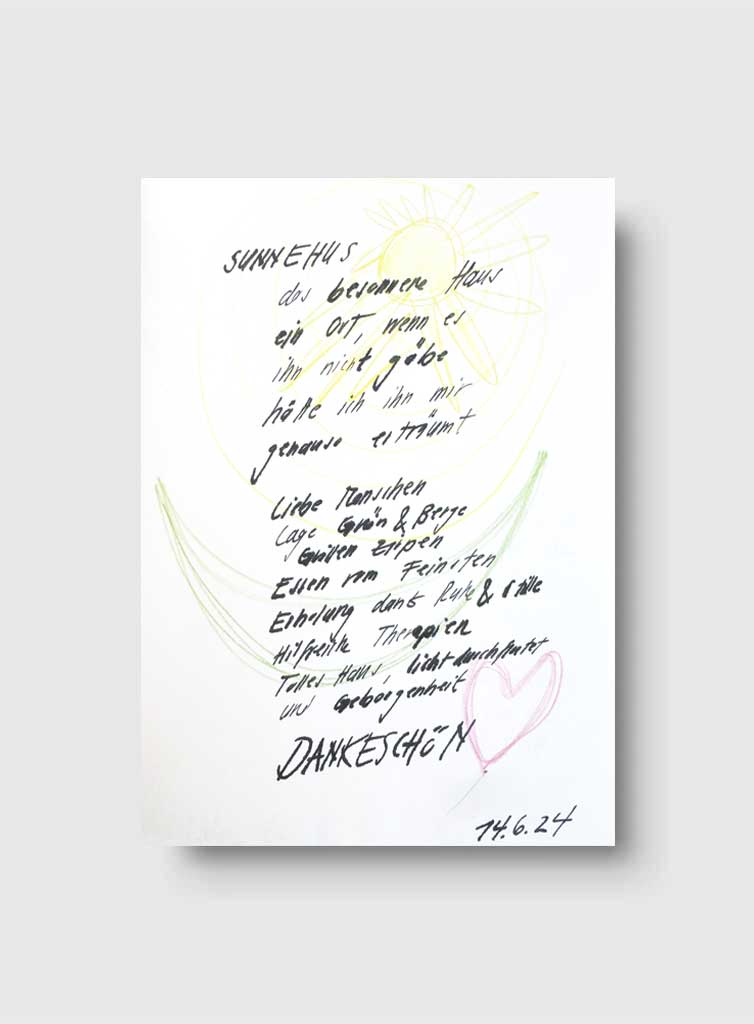 SUNNEHUS
das besonnere Haus
ein Ort, wenn es
ihn nicht gäbe
hätte ich ihn mir
genauso erträumt
Liebe Menschen
Lage Grün & Berge
Grillen Zirpen
Essen vom Feinsten
Erholung dank Ruhe & Stille
Hilfreiche Therapien
Tolles Haus, lichtdurchflutet
und Geborgenheit
DANKESCHÖN
14.6.24